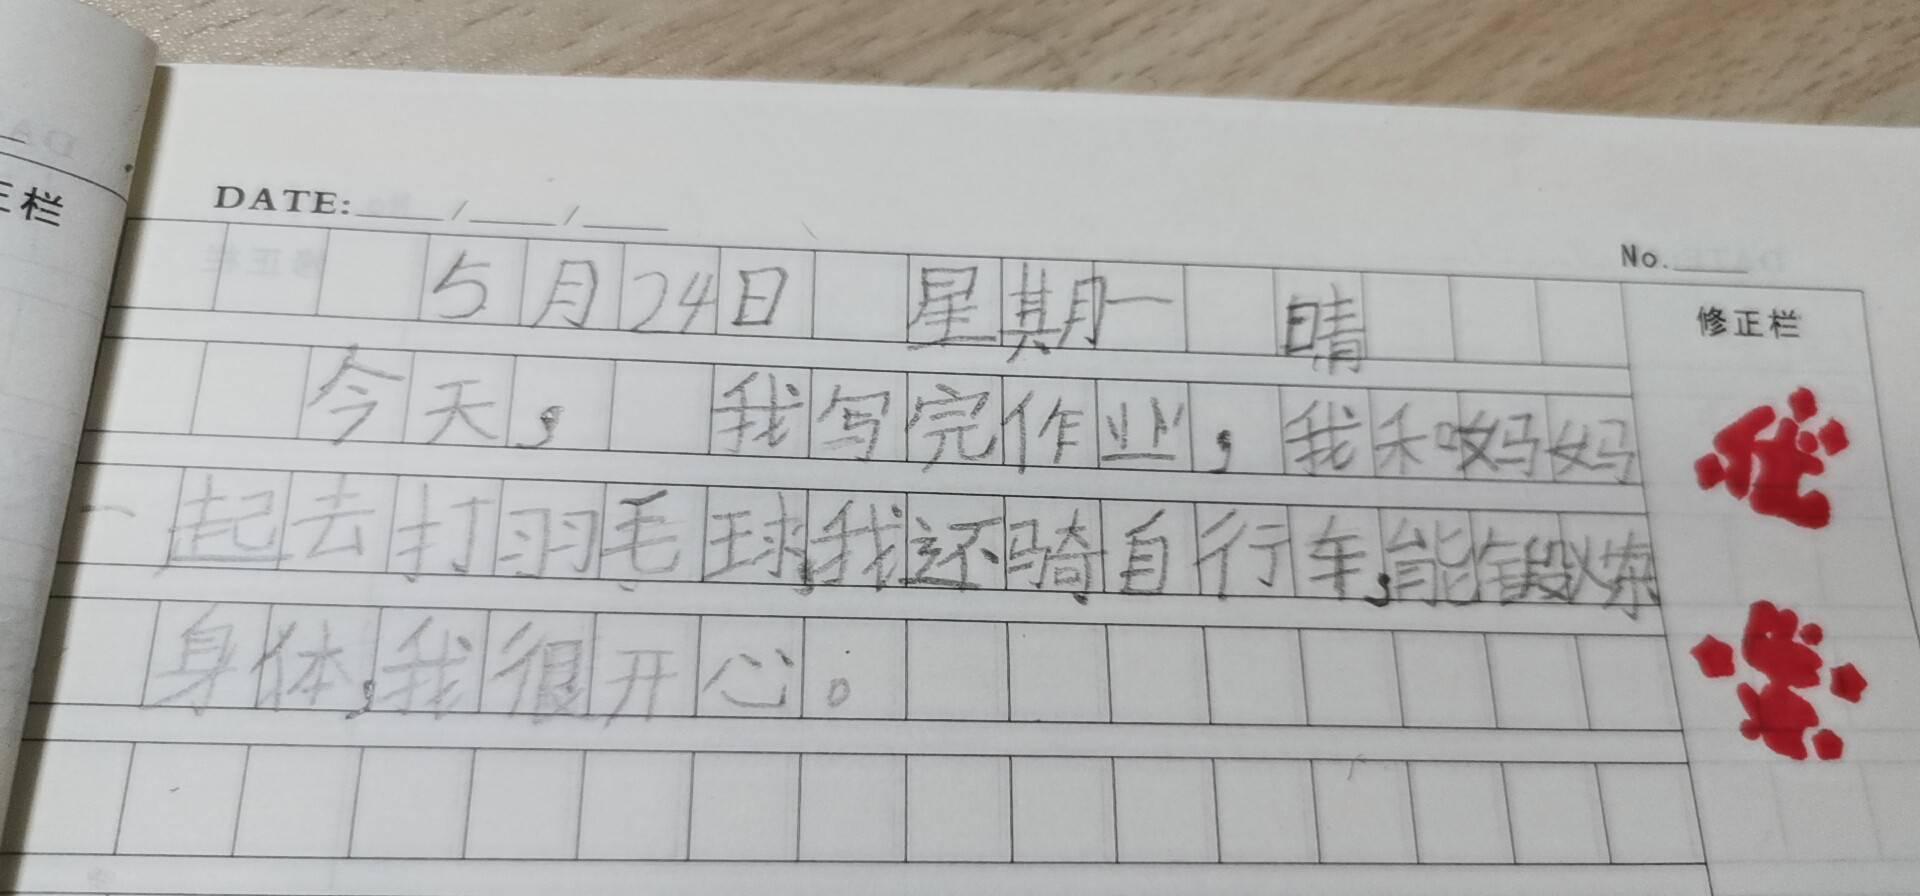 正栏
DATE:____/____/____
No.____
修正栏
5月24日 星期一 晴
今天, 我写完作业,我和妈妈
一起去打羽毛球,我还骑自行车,能锻炼
身体,我很开心。